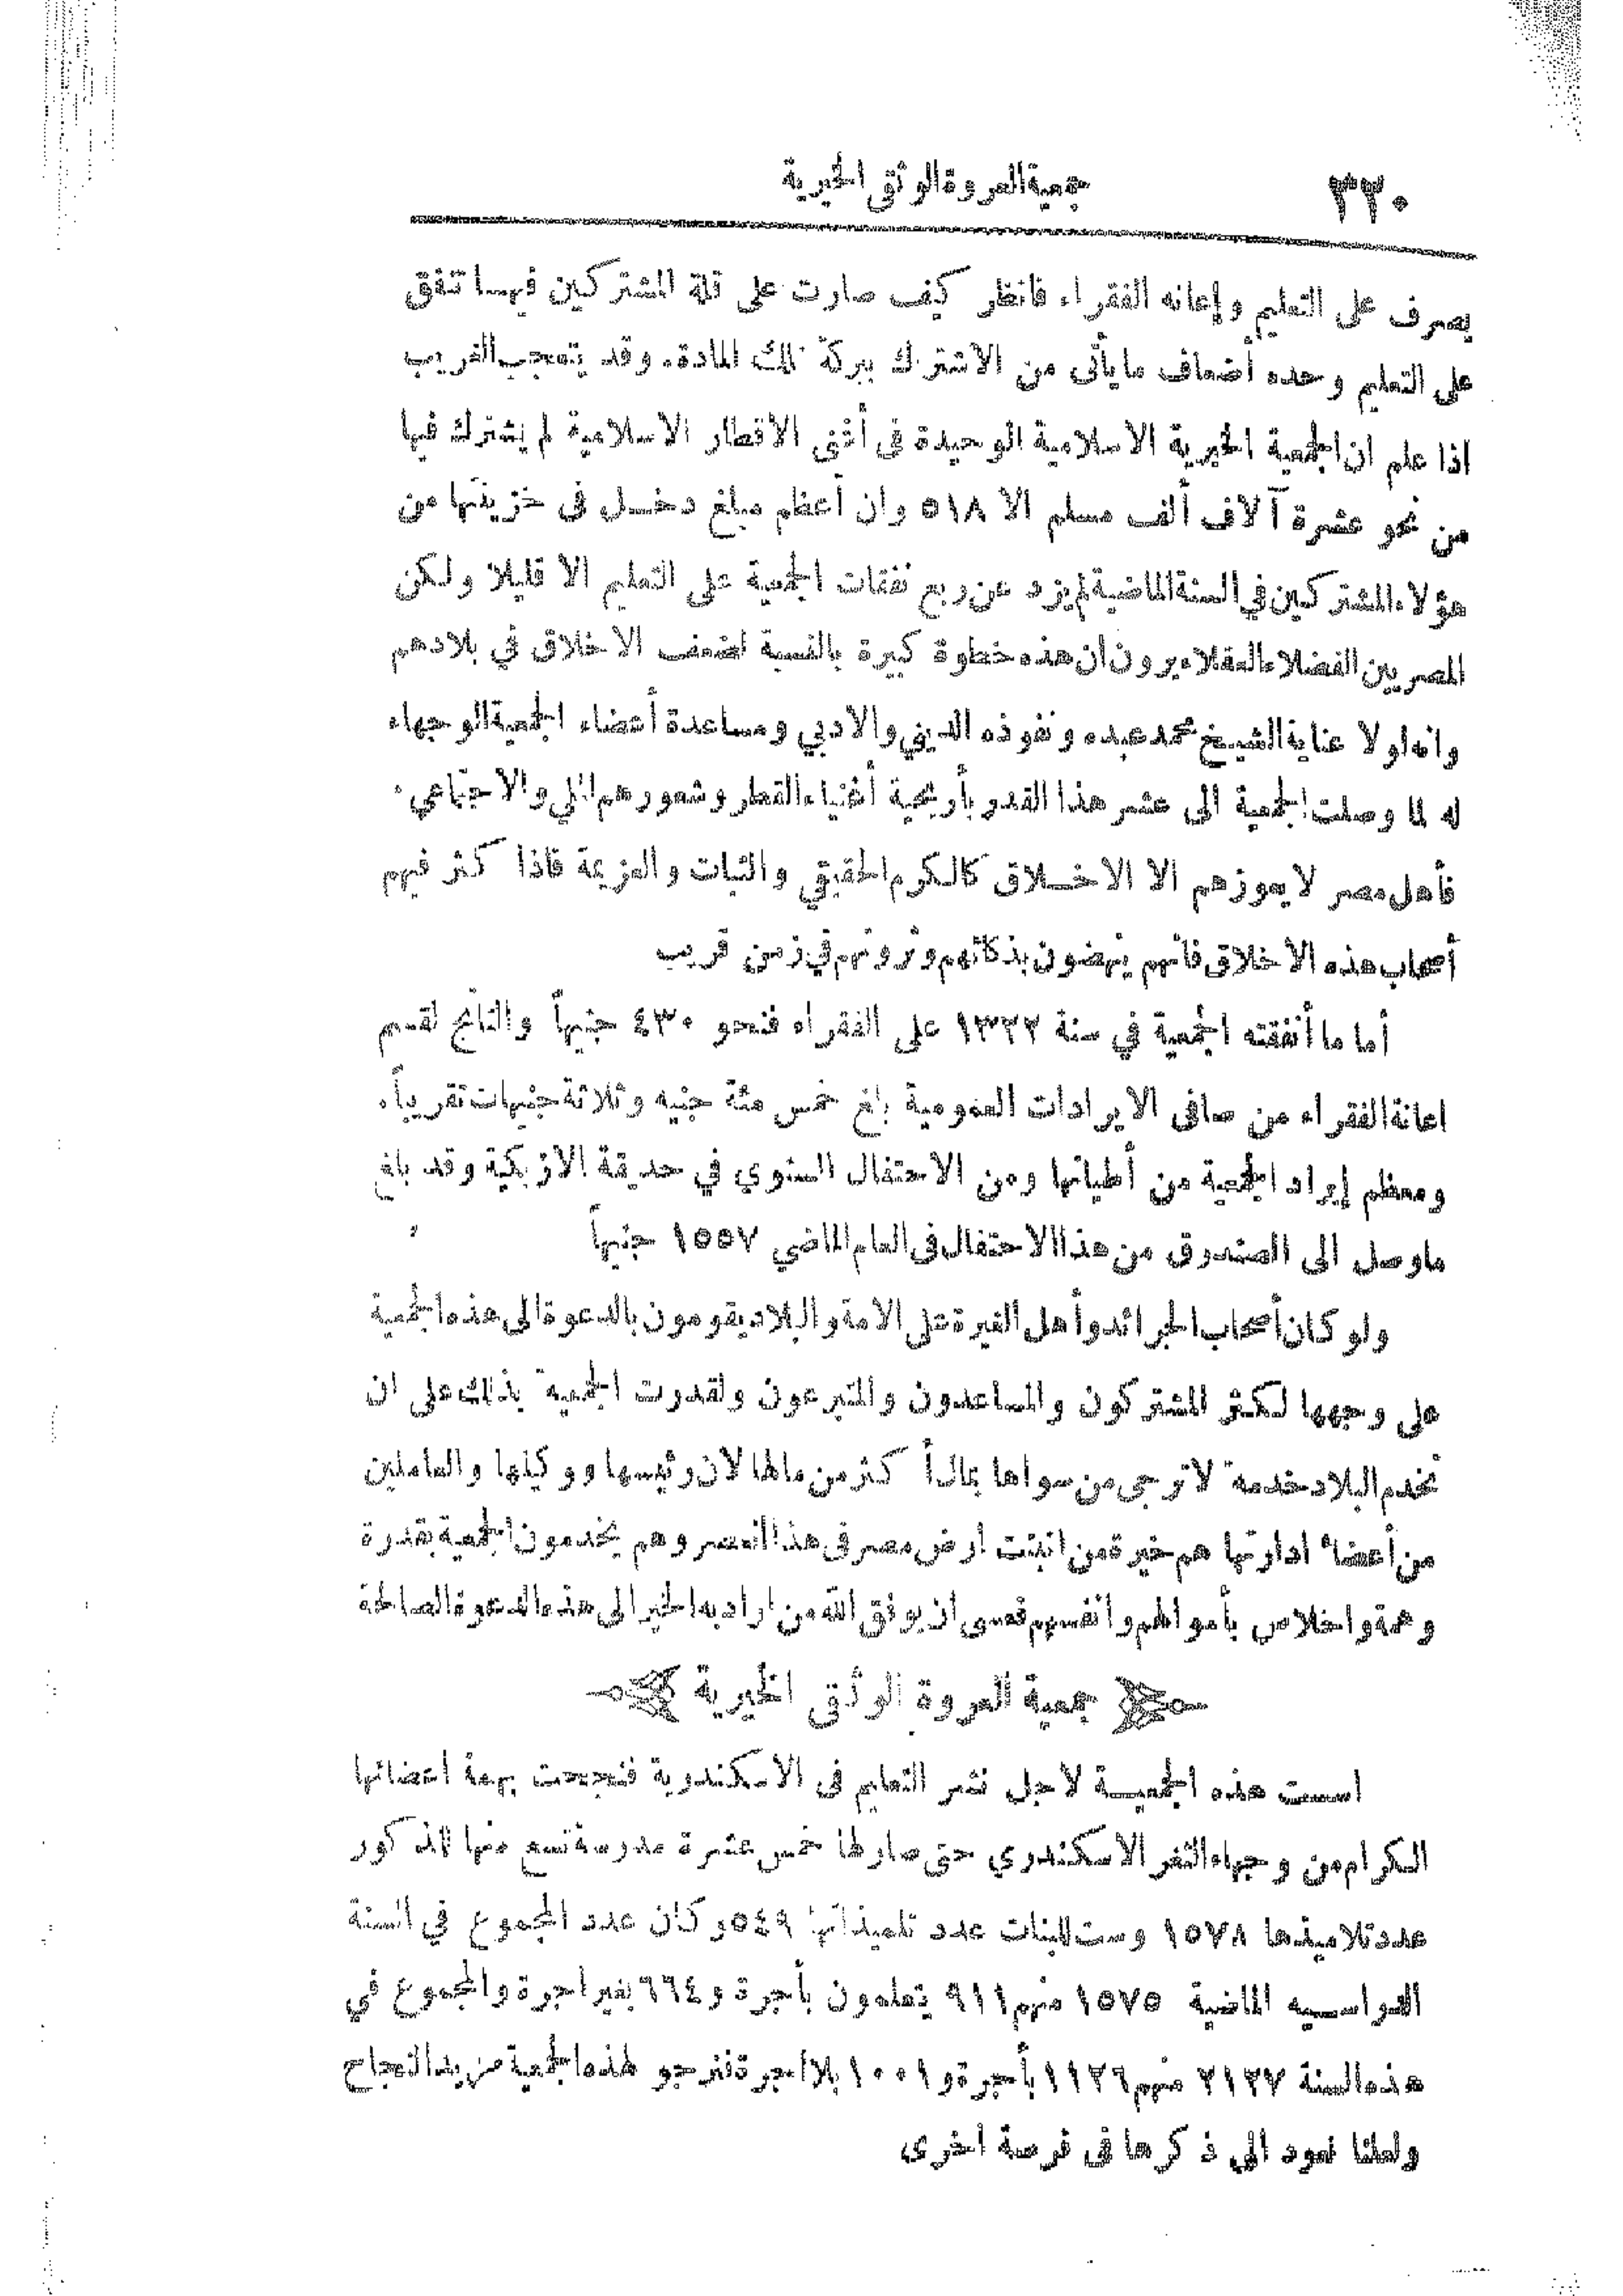 ٣٣٠
جمعية العروة الوثقى الخيرية
يصرف على التعليم وإعانه الفقراء فانظر كيف صارت على قلة المشتركين فيهـا تنفق
على التعليم وحده أضعاف ما يأتى من الاشتراك ببركة تلك المادة. وقد يتعجب الغريب
اذا علم ان الجمعية الخيرية الاسلامية الوحيدة فى أغنى الاقطار الاسلامية لم يشترك فيها
من نحو عشرة آلاف ألف مسلم الا ٥١٨ وان أعظم مبلغ دخـل فى خزينتها من
هؤلاء المشتركين في السنة الماضية لم يزد عن ربع نفقات الجمعية على التعليم الا قليلا ولكن
المصريين الفضلاء العقلاء يرون ان هذه خطوة كبيرة بالنسبة لضعف الاخلاق في بلادهم
وانه لولا عناية الشيخ محمد عبده ونفوذه الديني والادبي ومساعدة أعضاء الجمعية الوجهاء
له لما وصلت الجمعية الى عشر هذا القدر بأريحية أغنياء القطر وشعورهم الملي والاجتماعي٠
فأهل مصر لا يعوزهم الا الاخـلاق كالكرم الحقيقي والثبات والعزيمة فاذا كثر فيهم
أصحاب هذه الاخلاق فانهم ينهضون بذكائهم وثروتهم في زمن قريب
أما ما أنفقته الجمعية في سنة ١٣٢٢ على الفقراء فنحو ٤٣٠ جنيهاً والناتج لقسم
اعانة الفقراء من صافى الايرادات العمومية بلغ خمس مئة جنيه وثلاثة جنيهات تقريباً.
ومعظم إيراد الجمعية من أطيانها ومن الاحتفال السنوي في حديقة الازبكية وقد بلغ
ما وصل الى الصندوق من هذا الاحتفال فى العام الماضي ١٥٥٧ جنيهاً
ولو كان أصحاب الجرائد وأهل الغيرة على الامة والبلاد يقومون بالدعوة الى هذه الجمعية
على وجهها لكثر المشتركون والمساعدون والمتبرعون ولقدرت الجمعية بذلك على ان
تخدم البلاد خدمة لا ترجى من سواها بمال أكثر من مالها لان رئيسها ووكيلها والعاملين
من أعضاء ادارتها هم خيرة من انبتت ارض مصر فى هذا العصر وهم يخدمون الجمعية بقدرة
وهمة واخلاص بأموالهم وانفسهم فعسى ان يوفق الله من اراد به الخير الى هذه الدعوة الصالحة
جمعية العروة الوثقى الخيرية
اسست هذه الجمعيـة لاجل نشر التعليم فى الاسكندرية فنجحت بهمة اعضائها
الكرام من وجهاء الثغر الاسكندري حتى صار لها خمس عشرة مدرسة تسع منها للذكور
عدد تلاميذها ١٥٧٨ وست للبنات عدد تلميذاتها ٥٤٩ وكان عدد المجموع في السنة
الدراسيه الماضية ١٥٧٥ منهم ٩١١ يتعلمون بأجرة و٦٦٤ بغير اجرة والمجموع في
هذه السنة ٢١٢٧ منهم ١١٢٦ بأجرة و١٠٠١ بلا اجرة فنرجو لهذه الجمعية مزيد النجاح
ولعلنا نعود الى ذكرها فى فرصة اخرى